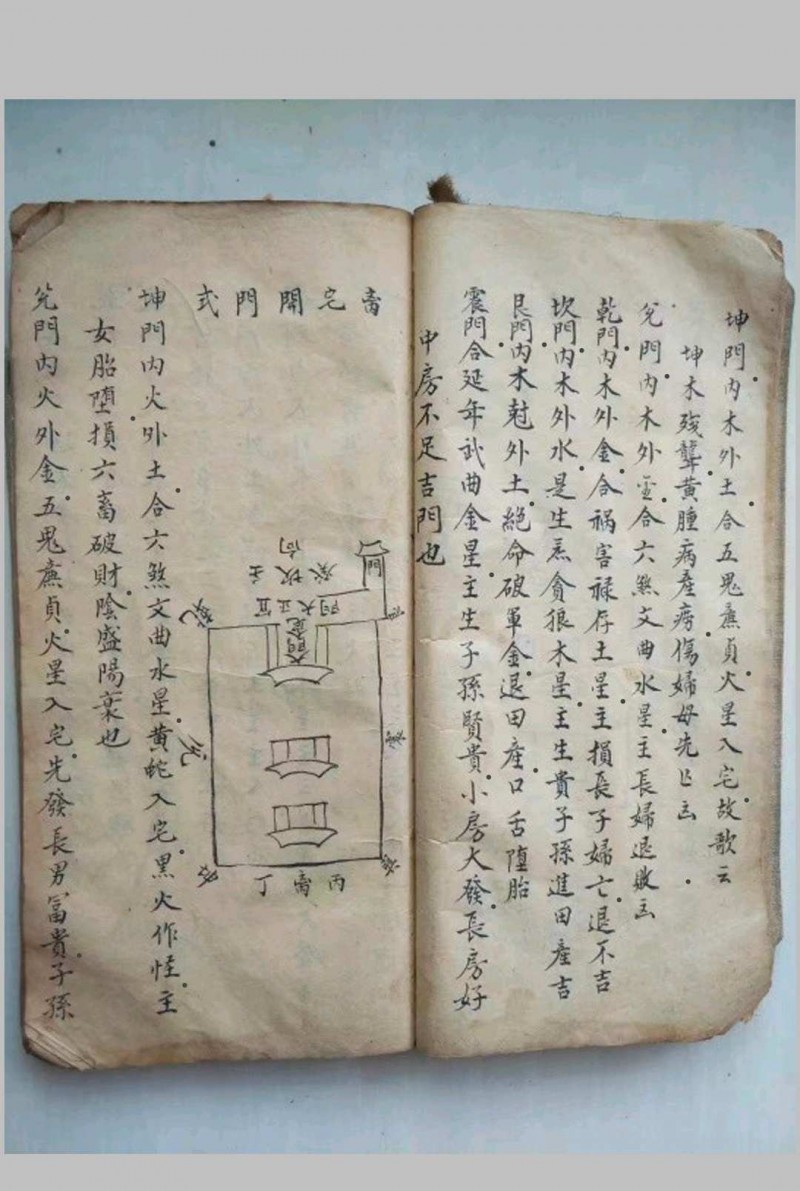 坤門内木外土合五鬼廉貞火星入宅故歌云
坤木殘聾黄腫病產痨傷婦母先亡凶
兊門内木外金合六煞文曲水星主長婦退敗凶
乾門内木外金合禍害禄存土星主損長子婦亡退不吉
坎門内木外水是生炁貪狼木星主生貴子孫進田產吉
艮門内木尅外土絕命破軍金退田產口舌堕胎
震門合延年武曲金星主生子孫賢貴小房大發長房好
中房不足吉門也
宅開門式
坤門内火外土合六煞文曲水星黄蛇入宅黑火作怪主
女胎堕損六畜破財陰盛陽衰也
兊門内火外金五鬼廉貞火星入宅先發長男冨貴子孫
門
主坎癸向
宜正大門
丙 丁